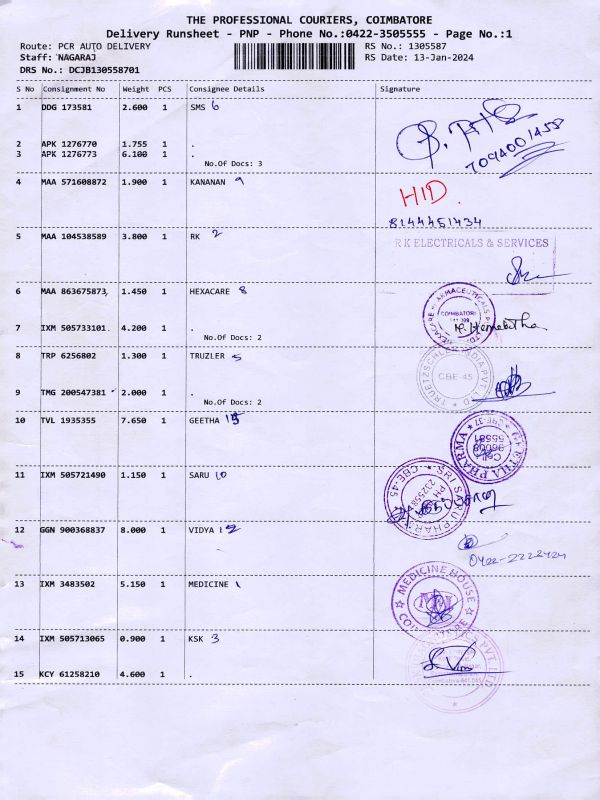 THE PROFESSIONAL COURIERS, COIMBATORE
Delivery Runsheet - PNP - Phone No.:0422-3505555 - Page No.:1
Route: PCR AUTO DELIVERY RS No.: 1305587
Staff: NAGARAJ RS Date: 13-Jan-2024
DRS No.: DCJB130558701
S No Consignment No Weight PCS Consignee Details Signature
1 DDG 173581 2.600 1 SMS 6
2 APK 1276770 1.755 1 .
3 APK 1276773 6.100 1 .
7094001458
No.Of Docs: 3
4 MAA 571608872 1.900 1 KANANAN 9
HID
8144451434
5 MAA 104538589 3.800 1 RK 2
R K ELECTRICALS & SERVICES
6 MAA 863675873 1.450 1 HEXACARE 8
COIMBATORE
7 IXM 505733101 4.200 1 .
No.Of Docs: 2
8 TRP 6256802 1.300 1 TRUZLER 5
CBE-45
9 TMG 200547381 2.000 1 .
No.Of Docs: 2
10 TVL 1935355 7.650 1 GEETHA 15
GEETHA PHARMA
11 IXM 505721490 1.150 1 SARU 10
SRI SARU PHARMA
CBE-45
12 GGN 900368837 8.000 1 VIDYA 12
0422-2222424
13 IXM 3483502 5.150 1 MEDICINE 1
MEDICINE HOUSE
14 IXM 505713065 0.900 1 KSK 3
15 KCY 61258210 4.600 1 .